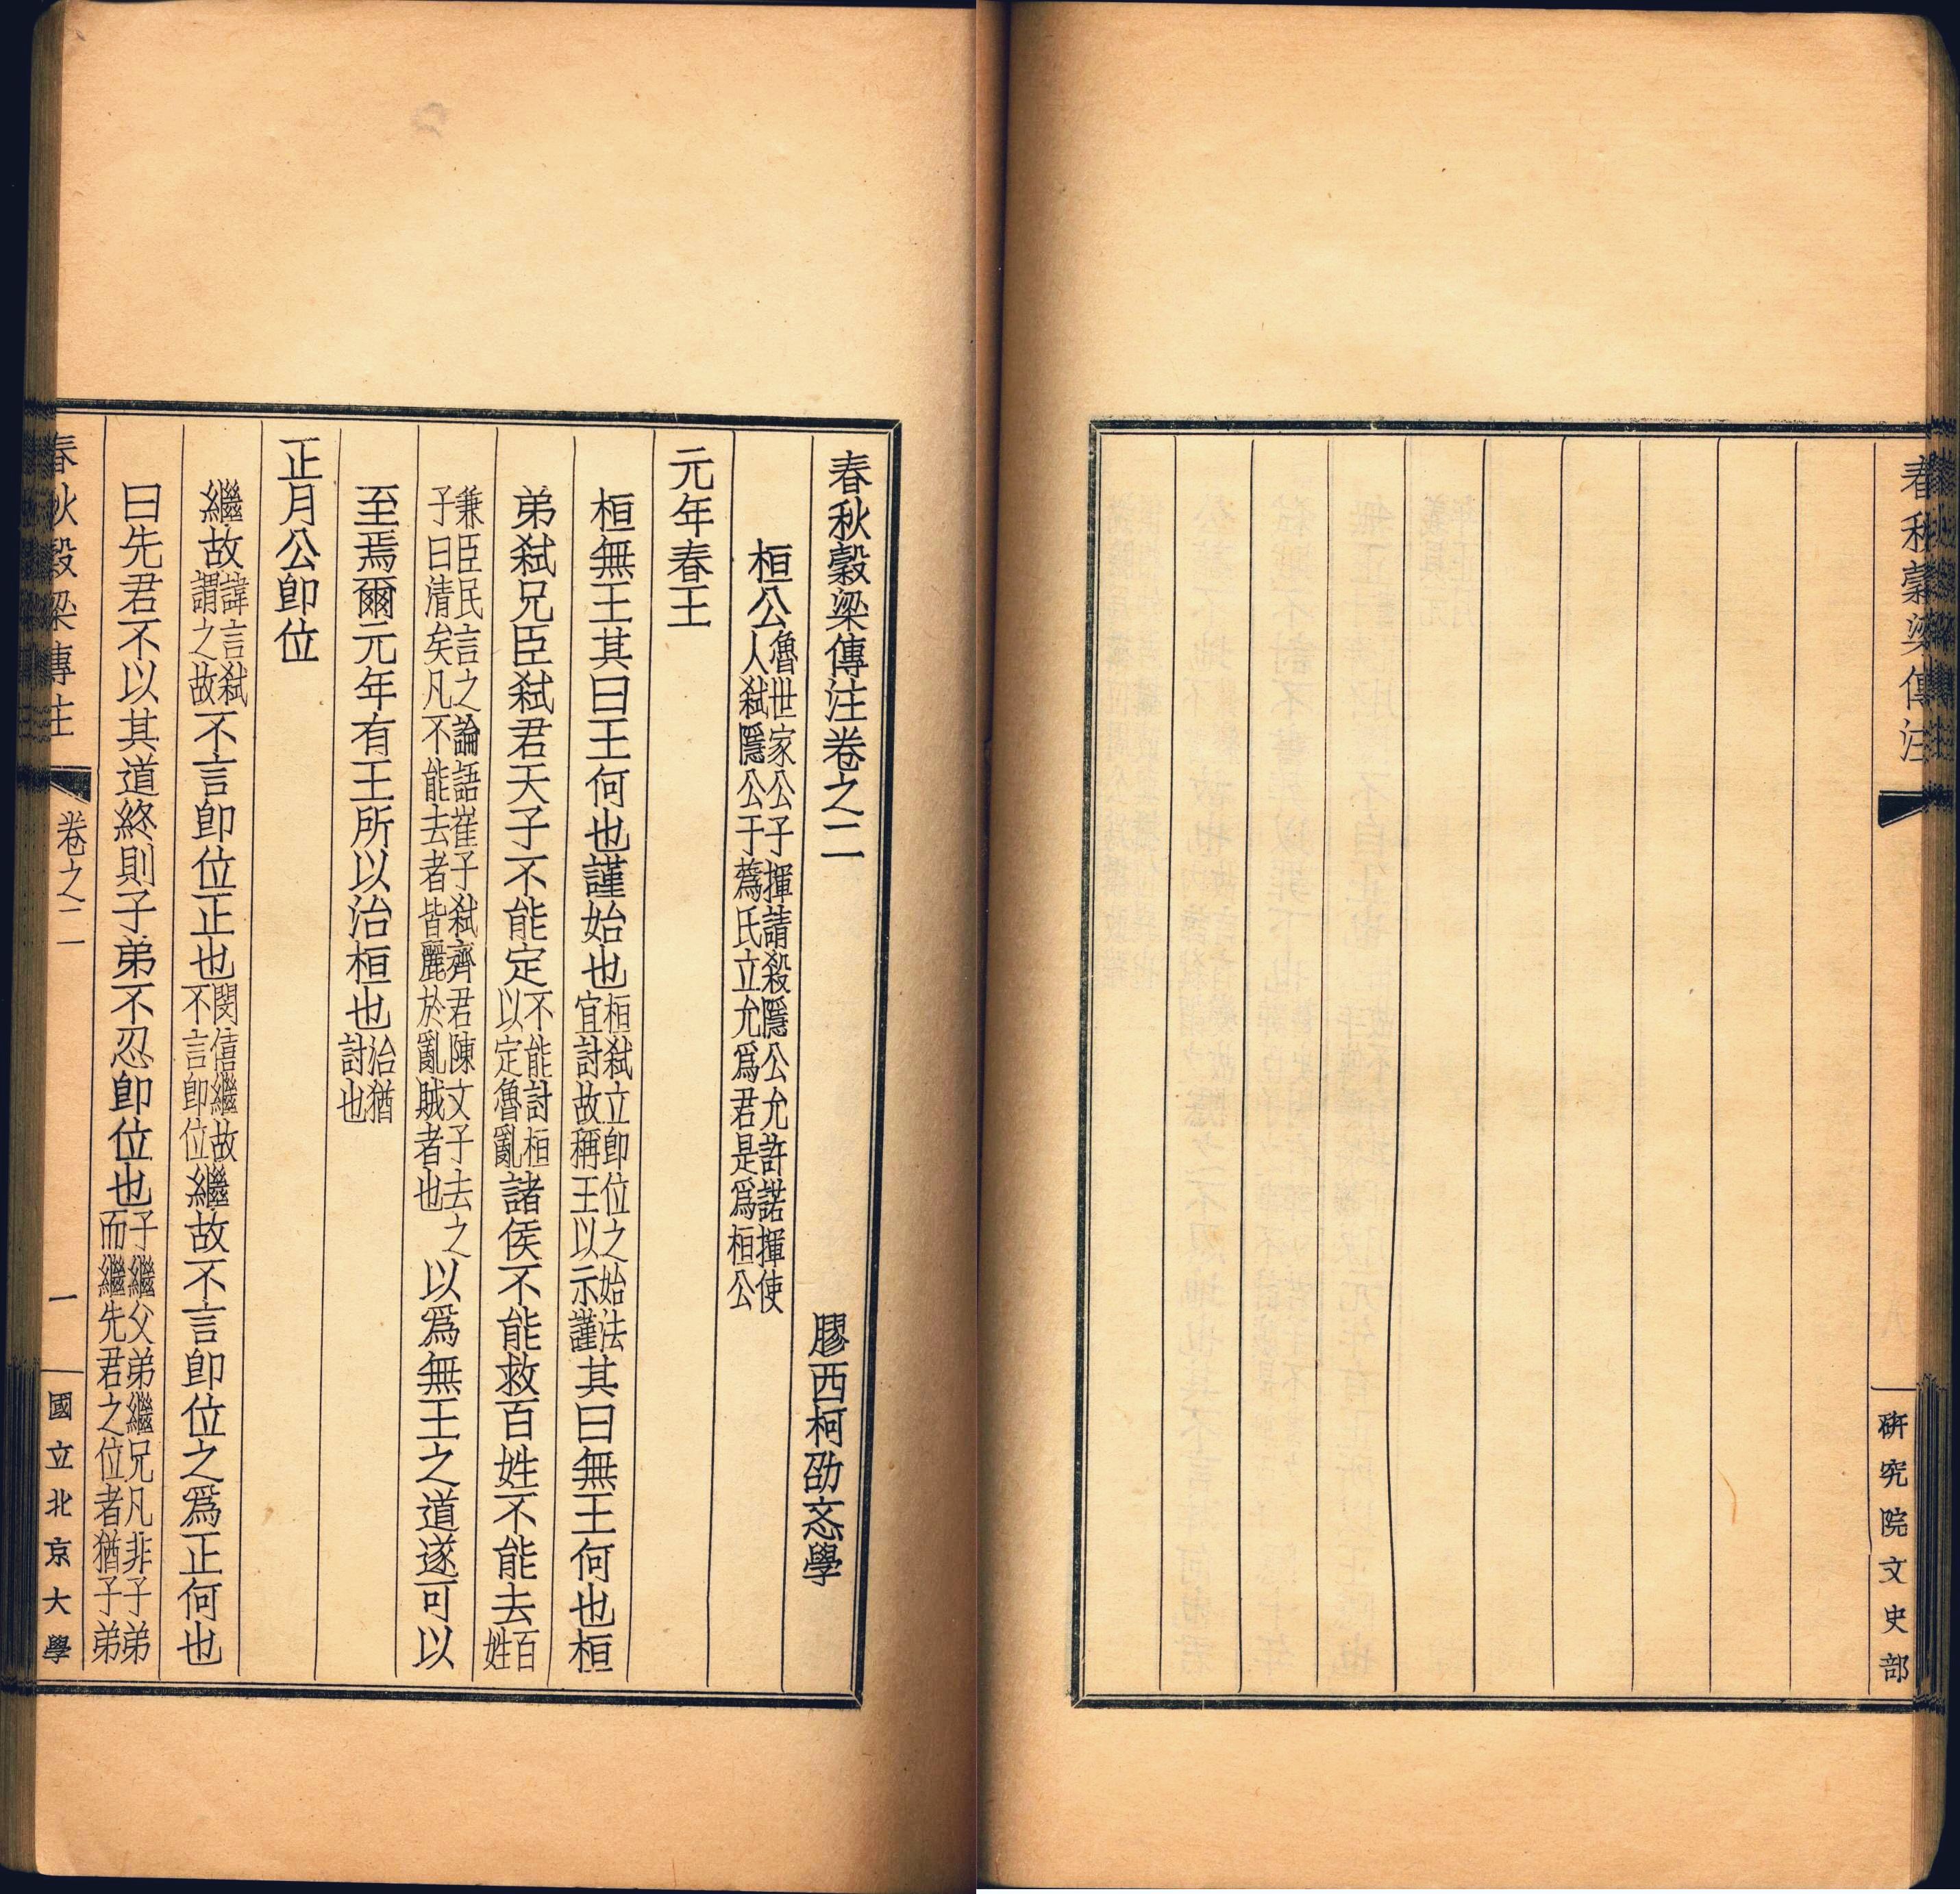 春秋穀梁傳注
研究院文史部
春秋穀梁傳注卷之二
膠西柯劭忞學
桓公魯世家公子揮請殺隱公允許諾揮使人弒隱公于蒍氏立允爲君是爲桓公
元年春王
桓無王其曰王何也謹始也桓弒立卽位之始法宜討故稱王以示謹其曰無王何也桓
弟弒兄臣弒君天子不能定不能討桓以定魯亂諸侯不能救百姓不能去百姓
兼臣民言之論語崔子弒齊君陳文子去之子曰清矣凡不能去者皆麗於亂賊者也以爲無王之道遂可以
至焉爾元年有王所以治桓也治猶討也
正月公卽位
繼故諱言弒謂之故不言卽位正也閔僖繼故不言卽位繼故不言卽位之爲正何也
曰先君不以其道終則子弟不忍卽位也子繼父弟繼兄凡非子弟而繼先君之位者猶子弟
春秋穀梁傳注
卷之二
一
國立北京大學